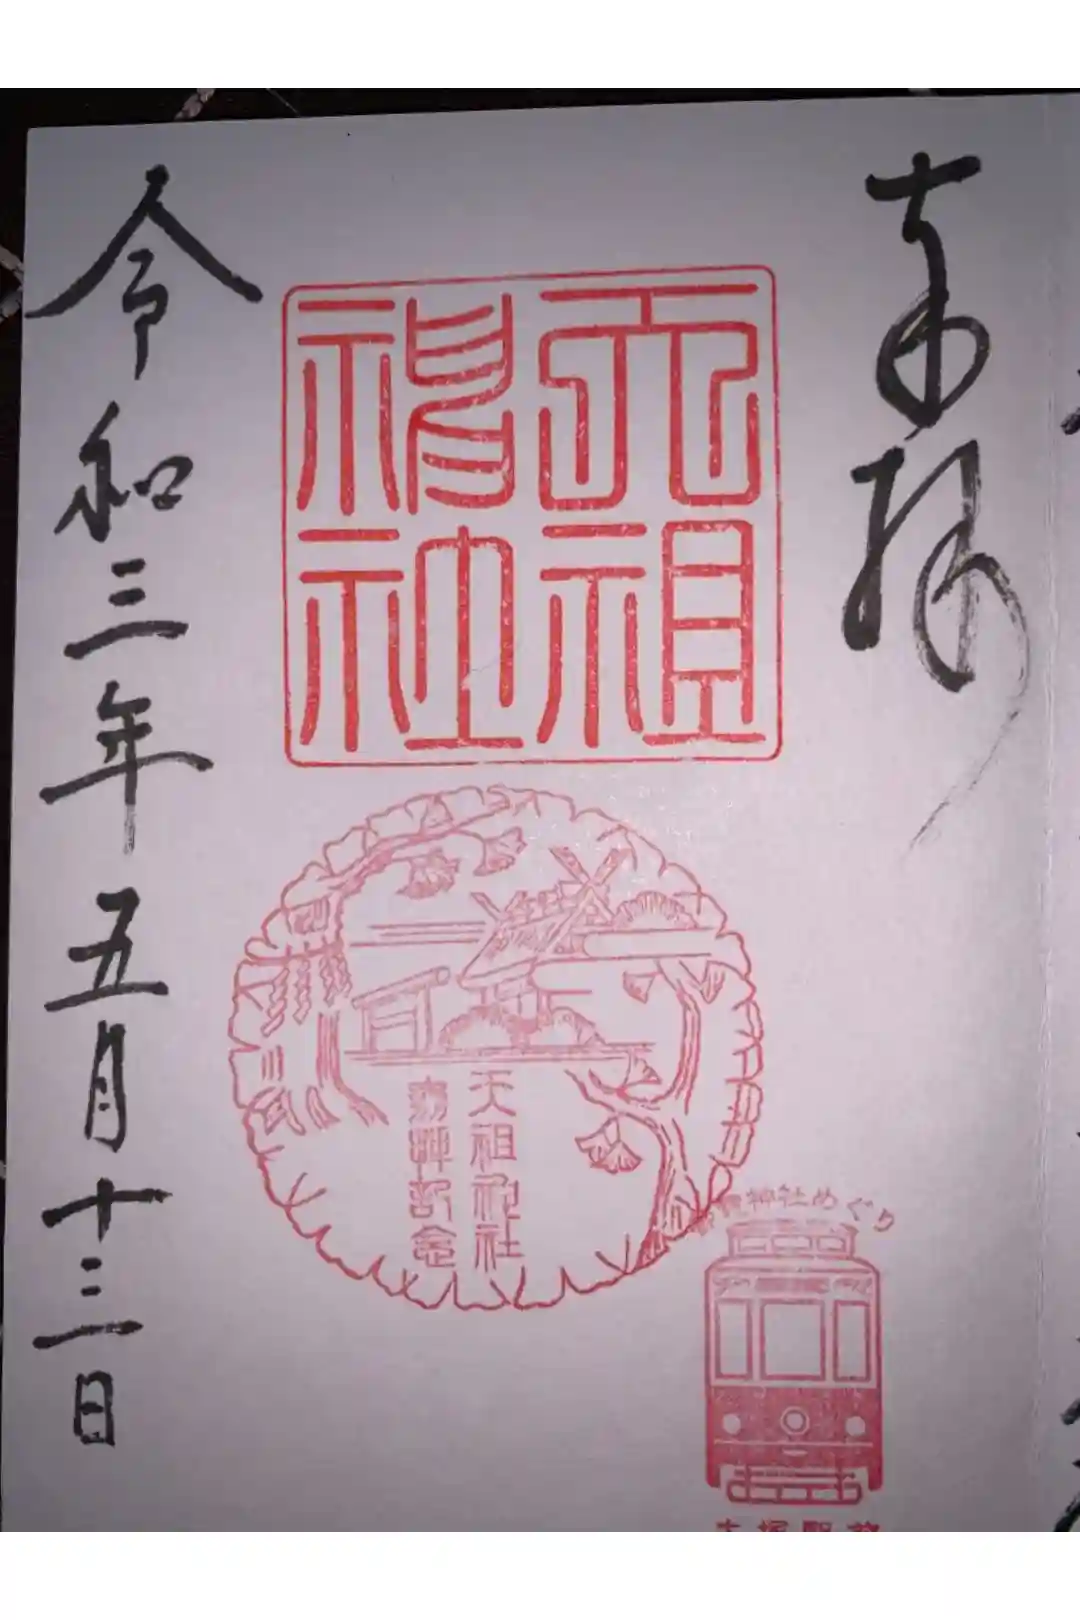 奉拝
天祖
神社
天祖神社
参拝記念
神社めぐり
大塚駅前
令和三年五月十三日